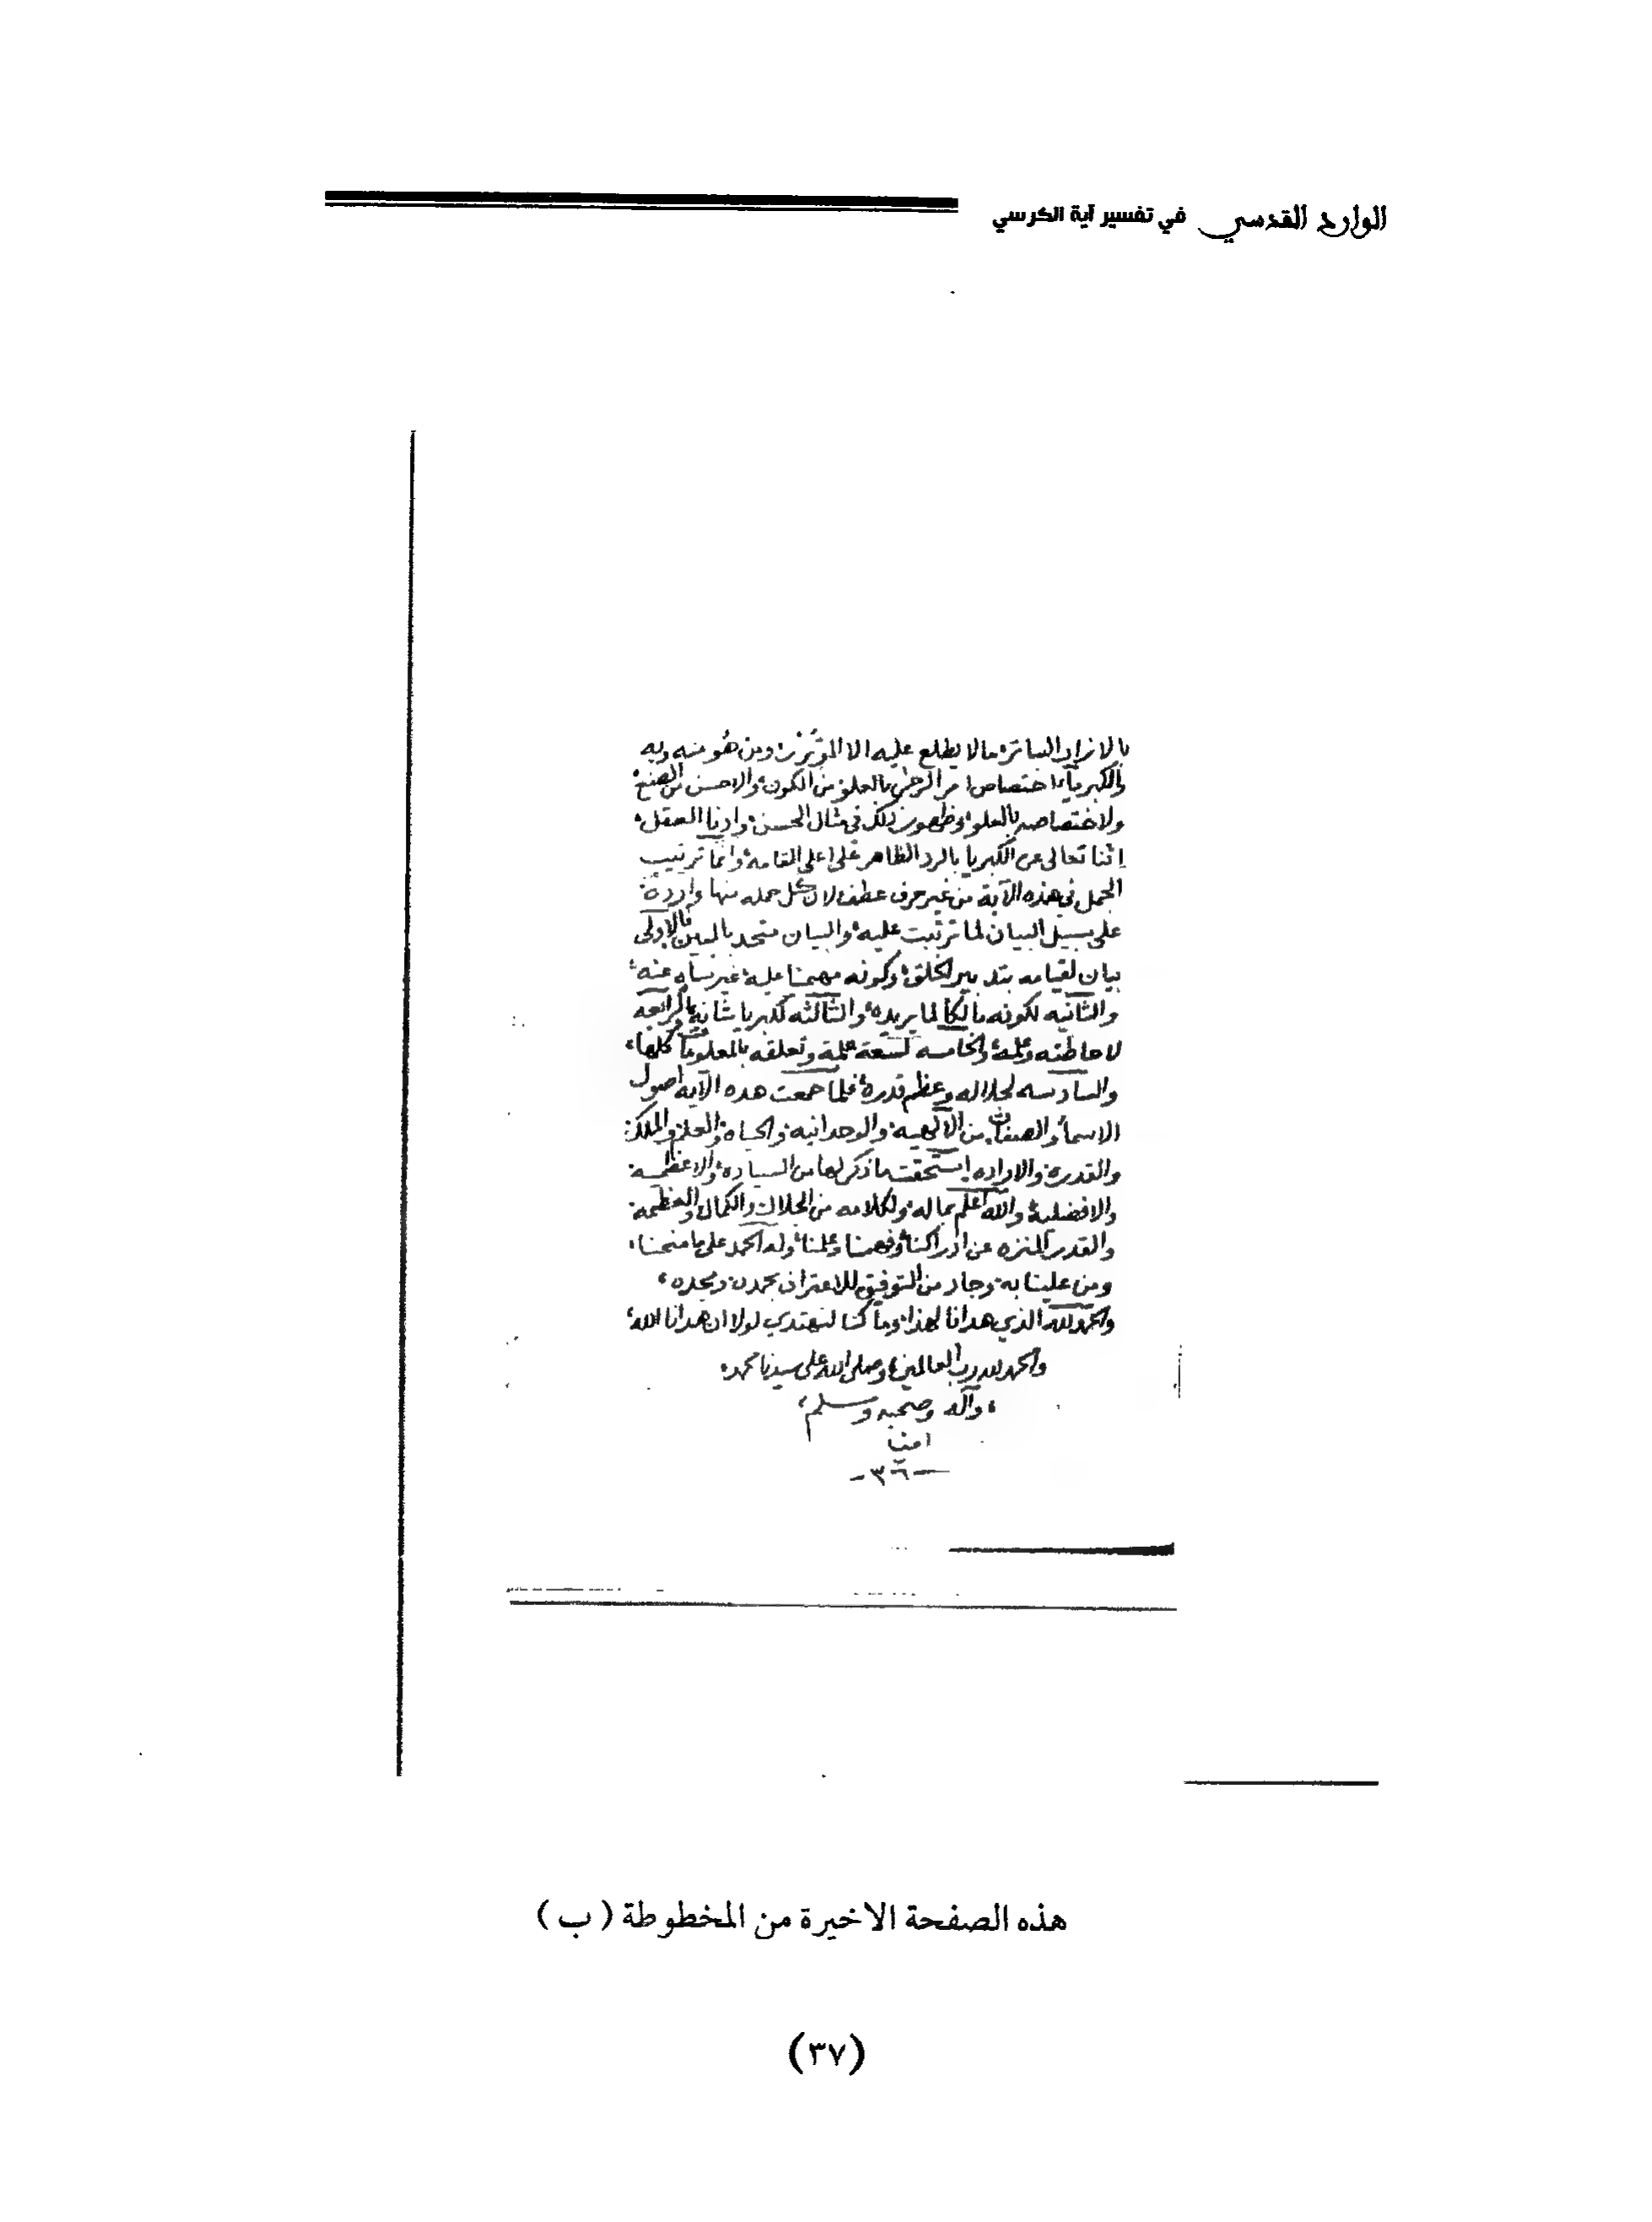 الوارد القدسي في تفسير آية الكرسي
بالازار الساتر ما لا يطلع عليه الا المؤتزر ومن هو منه وبه
والكبرياء اختصاص امر الرحمن بالعلو من الكون والاحسن من الصنع
ولاختصاصه بالعلو وظهور ذلك في مثال الحسن وادنا العقل
تعالى عن الكبريا بالرد الظاهر على اعلى القامة وانما ترتيب
الجمل في هذه الآية من غير حرف عطف لان كل جمله منها واردة
على سبيل البيان لما ترتبت عليه والبيان متحد بالمبين فالاولى
بيان لقيامه بتدبير الخلق وكونه مهيمنا عليه غير ساه عنه
والثانيه لكونه مالكا لما يريده والثالثه لكبريا شانه والرابعه
لاحاطته وعلمه والخامسه لسعة علمه وتعلقه بالمعلومات كلها
والسادسه لجلاله وعظم قدره فلما جمعت هذه الآيه اصول
الاسما والصفات من الالهيه والوحدانيه والحياه والعلم والملك
والقدرة والاراده استحقت ما ذكر لها من السياده والاعظميه
والافضلية والله اعلم بماله ولكلامه من الجلال والكمال والعظمه
والقدر المنزه عن ادراكنا وفهمنا وعلمنا وله الحمد على ما منحنا
ومن علينا به وجاد من التوفيق للاعتراف بحمده ومجده
والحمد لله الذي هدانا لهذا وما كنا لنهتدي لولا ان هدانا الله
والحمد لله رب العالمين وصلى الله على سيدنا محمد
وآله وصحبه وسلم
امين
-٣٦-
هذه الصفحة الاخيرة من المخطوطة (ب)
(٣٧)